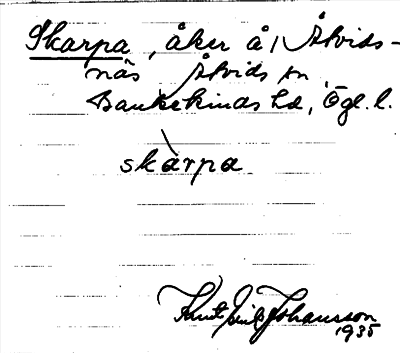 Skarpa, åker å Åtvids-
näs Åtvids sn,
Bankekinds hd, Ögl. l.
skàrpa
Knut Emil Johansson
1935